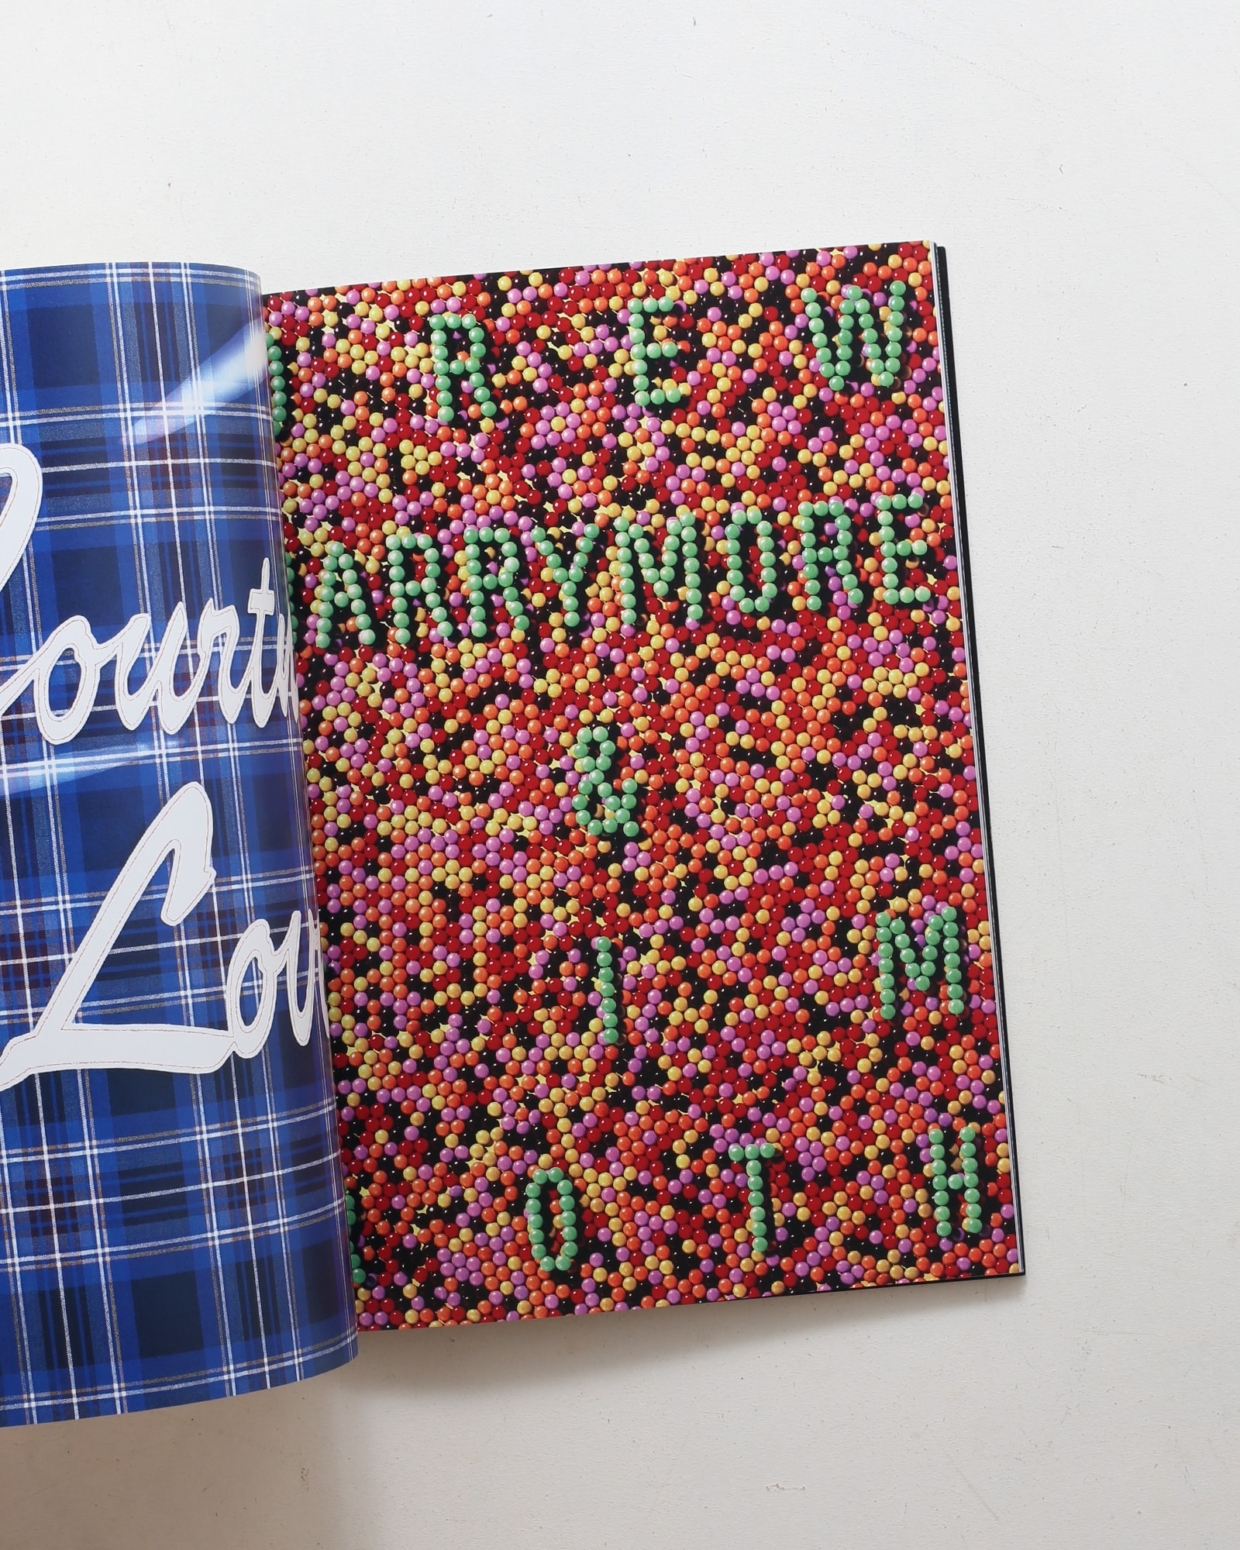 Court
Lov
R E W
ARRYMORE
&
I M
O T H